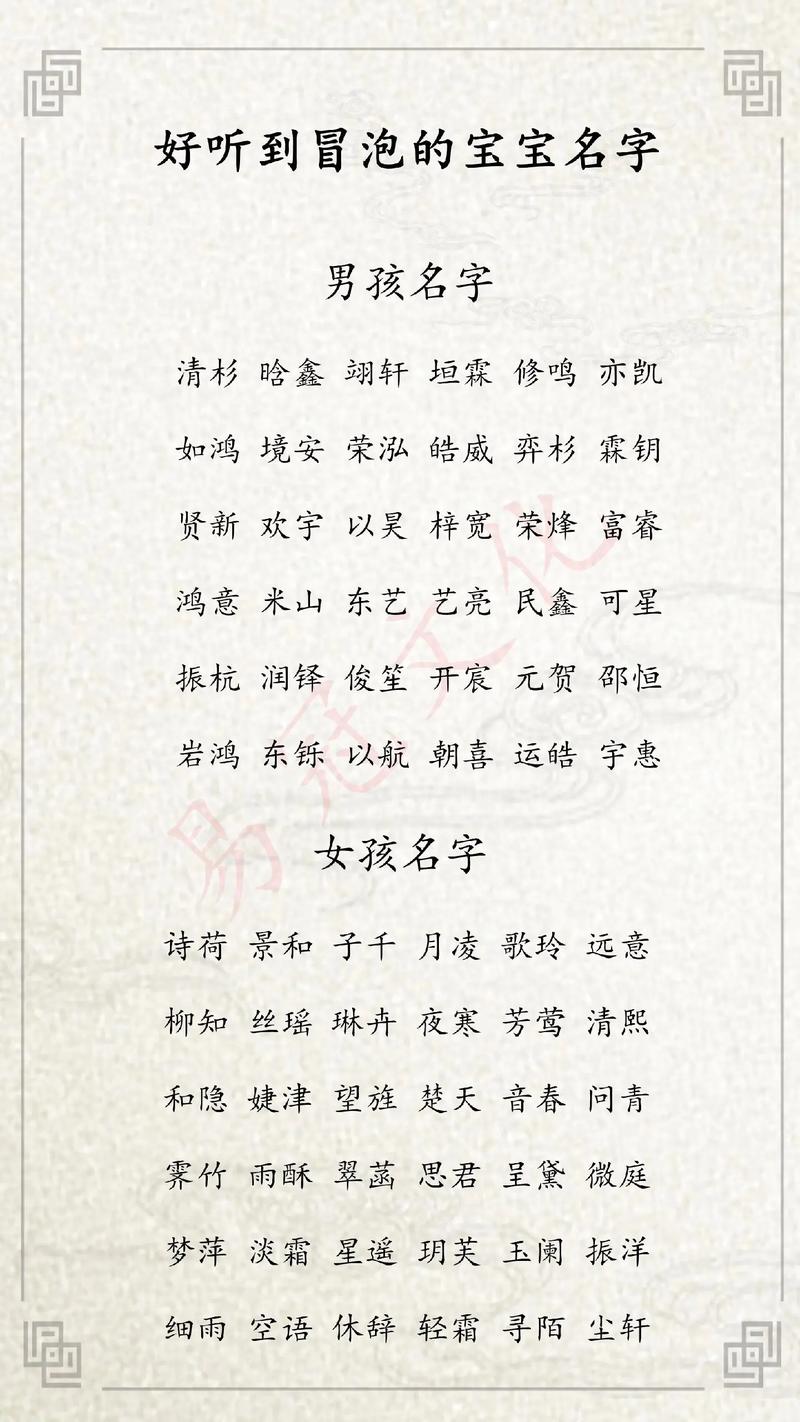 好听到冒泡的宝宝名字
男孩名字
清杉 晗鑫 翊轩 垣霖 修鸣 亦凯
如鸿 境安 荣泓 皓威 弈杉 霖钥
贤新 欢宇 以昊 梓宽 荣烽 富睿
鸿意 米山 东艺 艺亮 民鑫 可星
振杭 润铎 俊笙 开宸 元贺 邵恒
岩鸿 东铄 以航 朝喜 运皓 宇惠
易冠文化
女孩名字
诗荷 景和 子千 月凌 歌玲 远意
柳知 丝瑶 琳卉 夜寒 芳莺 清熙
和隐 婕津 望旌 楚天 音春 问青
霁竹 雨酥 翠菡 思君 呈黛 微庭
梦萍 淡霜 星遥 玥芙 玉阑 振洋
细雨 空语 休辞 轻霜 寻陌 尘轩